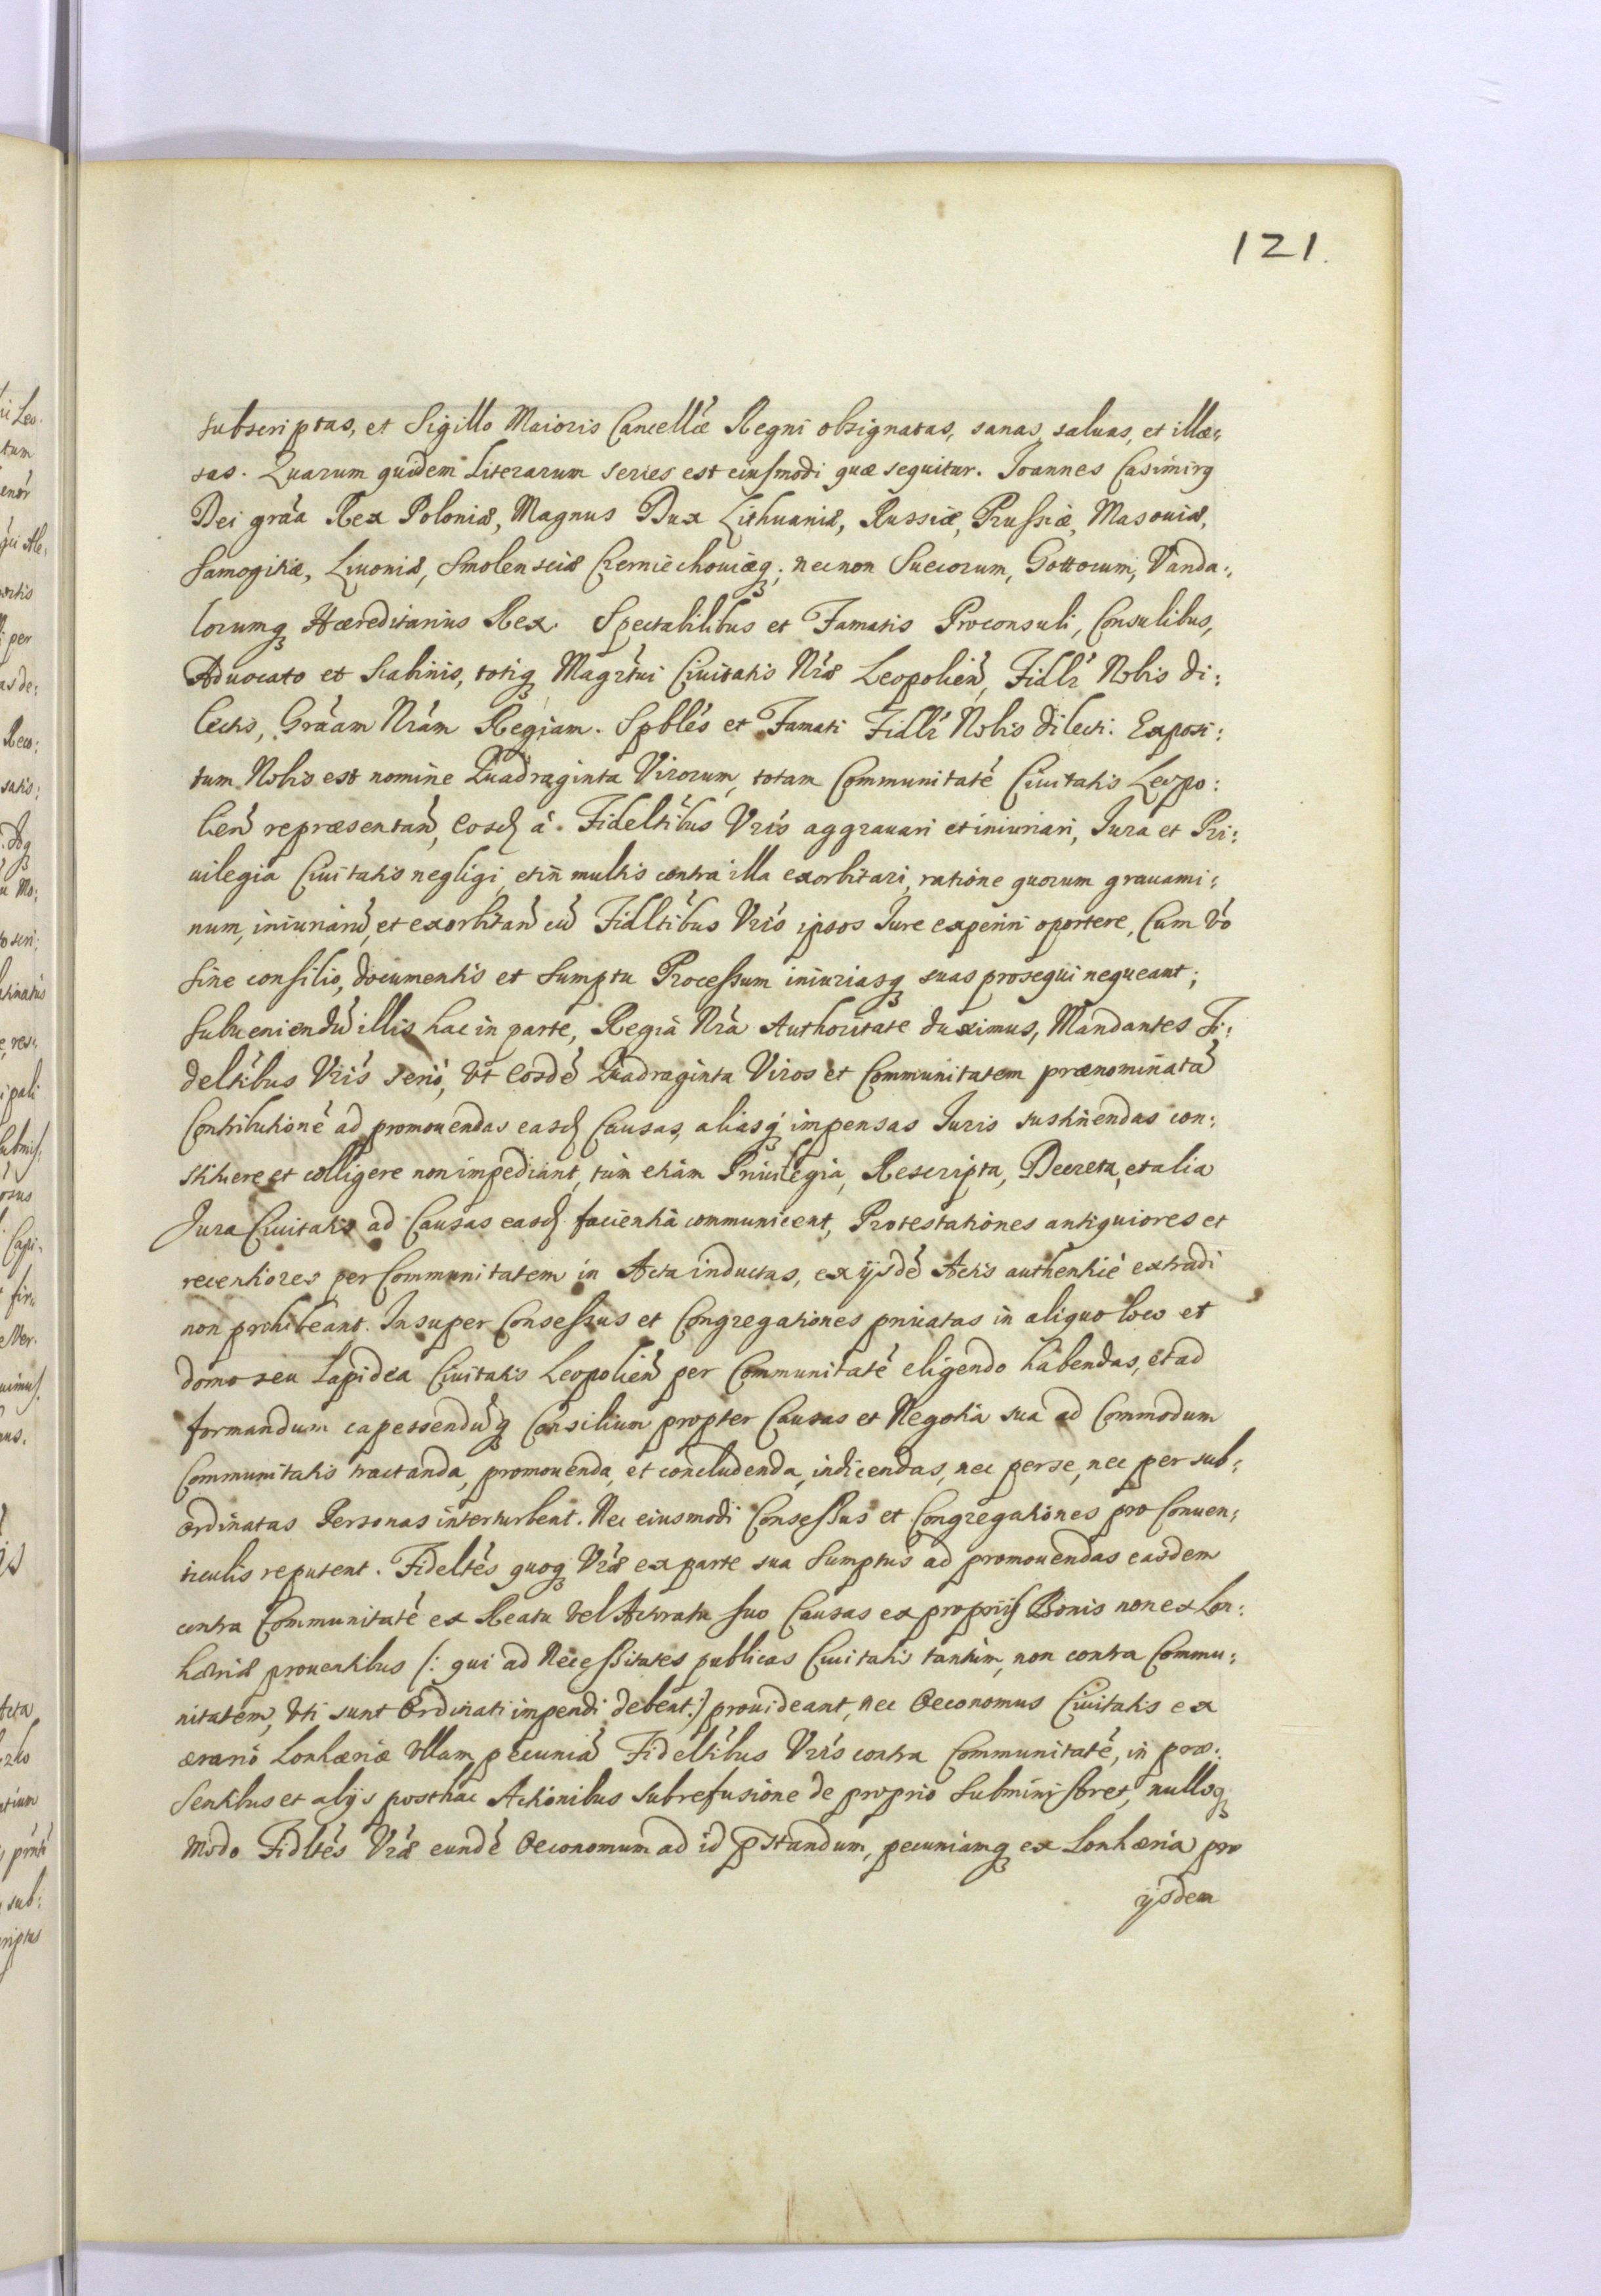 121.
subscriptas, et Sigillo Maioris Cancellæ Regni obsignatas, sanas, saluas, et illæ:
sas. Quarum quidem Literarum series est eiusmodi quæ sequitur. Joannes Casimirq
Dei grãa Rex Poloniæ, Magnus Dux Lithuaniæ, Russiæ, Prussiæ, Masouiæ,
Samogitiæ, Liuoniæ, Smolensciæ Czerniechouiæq; necnon Suecorum, Gottorum, Vanda:
lorumq Hæreditarius Rex. Spectabilibus et Famatis Proconsuli, Consulibus,
Aduocato et Scabinis, totiq Magrtui Ciuitatis Nræ Leopolien, Fidlr Nobis di:
lectis, Grãam Nrãm Regiam. Spblés et Famati Fidlr Nobis dilecti. Exposi:
tum Nobis est nomine Quadraginta Virorum, totam Communitaté Ciuitatis Leopo:
lien repræsentan, Eosd à Fideltibus Vris aggrauari et iniuriari, Jura et Pri:
uilegia Ciuitatis negligi, et in multis contra illa exorbitari, ratione quorum grauami:
num, iniuriarũ, et exorbitan cũ Fidltibus Vris ipsos Jure experiri oportere, Cum vo
sine consilio, documentis et Sumptu Processum iniuriasq suas prosequi nequeant;
Subueniendũ illis hac in parte, Regia Nra Authoritate duximus, Mandantes Fi:
deltibus Vris serio, vt Eosdé Quadraginta Viros et Communitatem prænominatã
Contributioné ad promouendas easd Causas, aliasq impensas Juris sustinendas con:
stituere et colligere non impediant, tum etiam Priuilegia, Rescripta, Decreta, et alia
Jura Ciuitatis ad Causas easd facientia communicent, Protestationes antiquiores et
recentiores per Communitatem in Acta inductas, ex ijsdé Actis authenticè extradi
non prohibeant. Insuper Consessus et Congregationes priuatas in aliquo loco et
domo seu Lapidea Ciuitatis Leopolien per Communitaté eligendo habendas, et ad
formandum capessendũq Consilium propter Causas et Negotia sua ad Commodum
Communitatis tractanda, promouenda, et concludenda, indicendas, nec per se, nec per sub:
ordinatas Personas interturbent. Nec eiusmodi Consessus et Congregationes pro Conuen:
ticulis reputent. Fideltés quoq Vræ ex parte sua Sumptus ad promouendas easdem
contra Communitaté ex Reatu vel Actoratu suo Causas ex proprijs Bonis non ex Lon:
hæriæ prouentibus /: qui ad Necessitates publicas Ciuitatis tantùm, non contra Commu:
nitatem, vti sunt Ordinati impendi debent :/ prouideant, nec Oeconomus Ciuitatis ex
ærario Lonhæriæ vllam pecuniã Fideltibus Vris contra Communitaté, in præ:
sentibus et alijs posthac Actionibus sub refusione de proprio subministret, nulloq
Modo Fidltés Vræ eundé Oeconomum ad id pstandum, pecuniamq ex Lonhæria pro
ijsdem